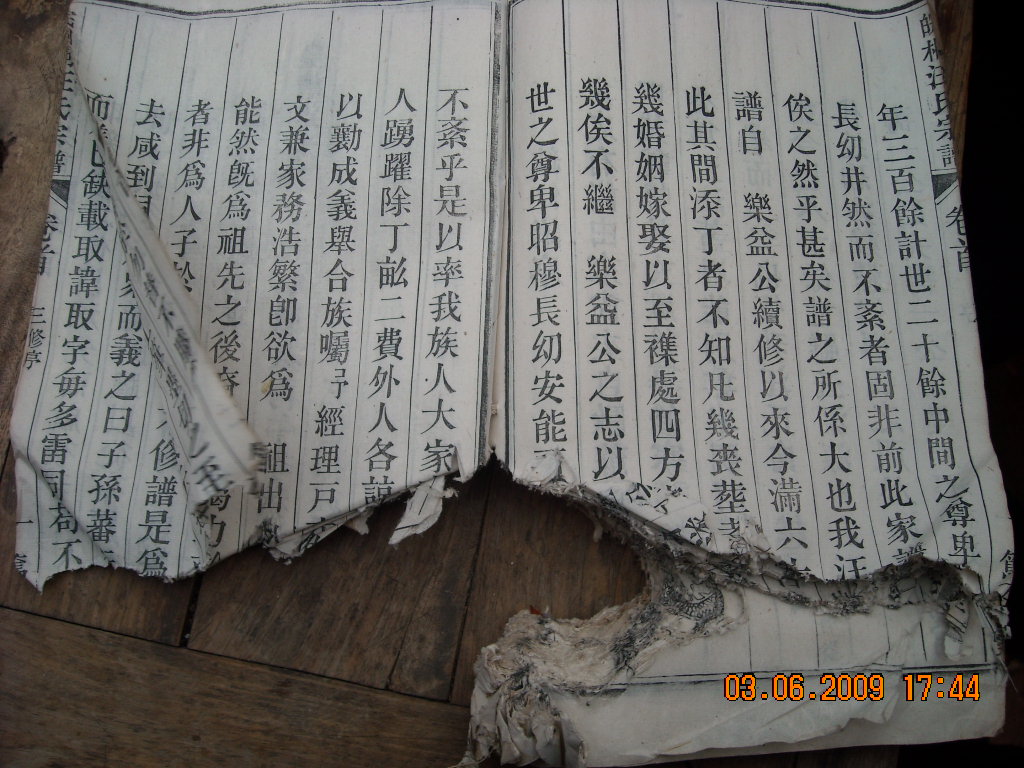 汪氏宗譜
卷首
年三百餘計世二十餘中間之尊卑
長幼井然而不紊者固非前此家譜
俟之然乎甚矣譜之所係大也我汪
譜自 樂益公續修以來今滿六
此其間添丁者不知凡幾喪塟
幾婚姻嫁娶以至襍處四方
幾俟不繼 樂益公之志以
世之尊卑昭穆長幼安能
不紊乎是以率我族人大家
人踴躍除丁畝二費外人各
以勷成義舉合族囑予經理戸
文兼家務浩繁卽欲爲 祖出
能然旣爲祖先之後裔
者非爲人子於
去咸到
修譜是爲
而義之曰子孫蕃
缺載取諱取字每多雷同苟不
汪氏宗譜
卷首
三修亭
一
03.06.2009 17:44